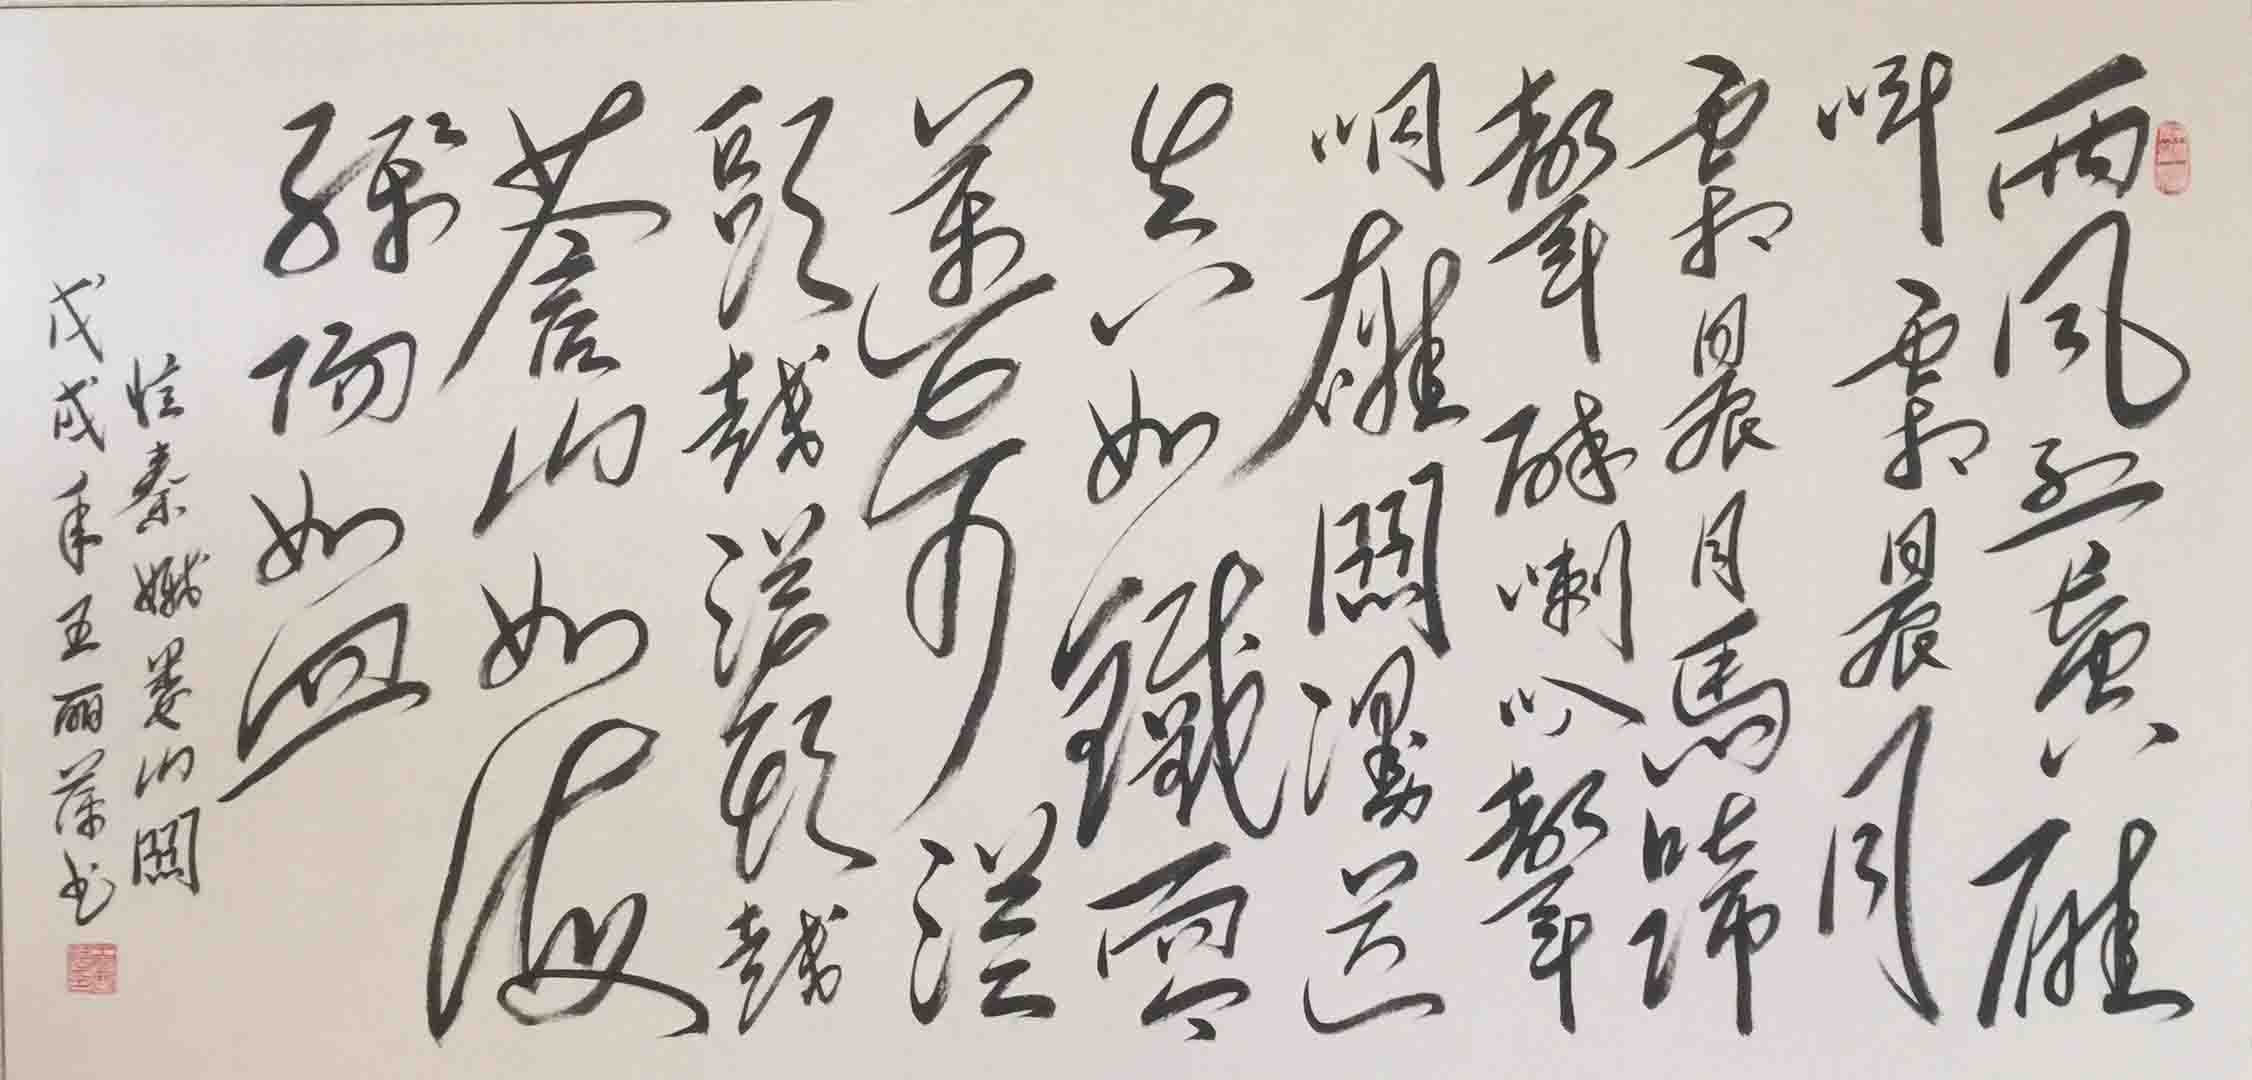 西風烈長空雁
叫霜晨月
霜晨月馬蹄
聲碎喇叭聲
咽雄關漫道
真如鐵而今
邁步從
頭越從頭越
蒼山如海
殘陽如血
憶秦娥婁山關
戊戌年王丽萍书